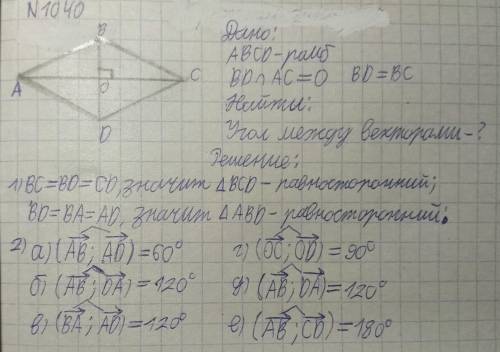 N1040
B
A
O
C
D
Дано:
ABCD-ромб
BD∩AC=O BD=BC
Найти:
Угол между векторами-?
Решение:
1) BC=BD=CD, значит △BCD-равносторонний;
BD=BA=AD, значит △ABD-равносторонний.
2) а) (AB; AD)=60° г) (OC; OD)=90°
б) (AB; DA)=120° д) (AB; DA)=120°
в) (BA; AD)=120° е) (AB; CD)=180°